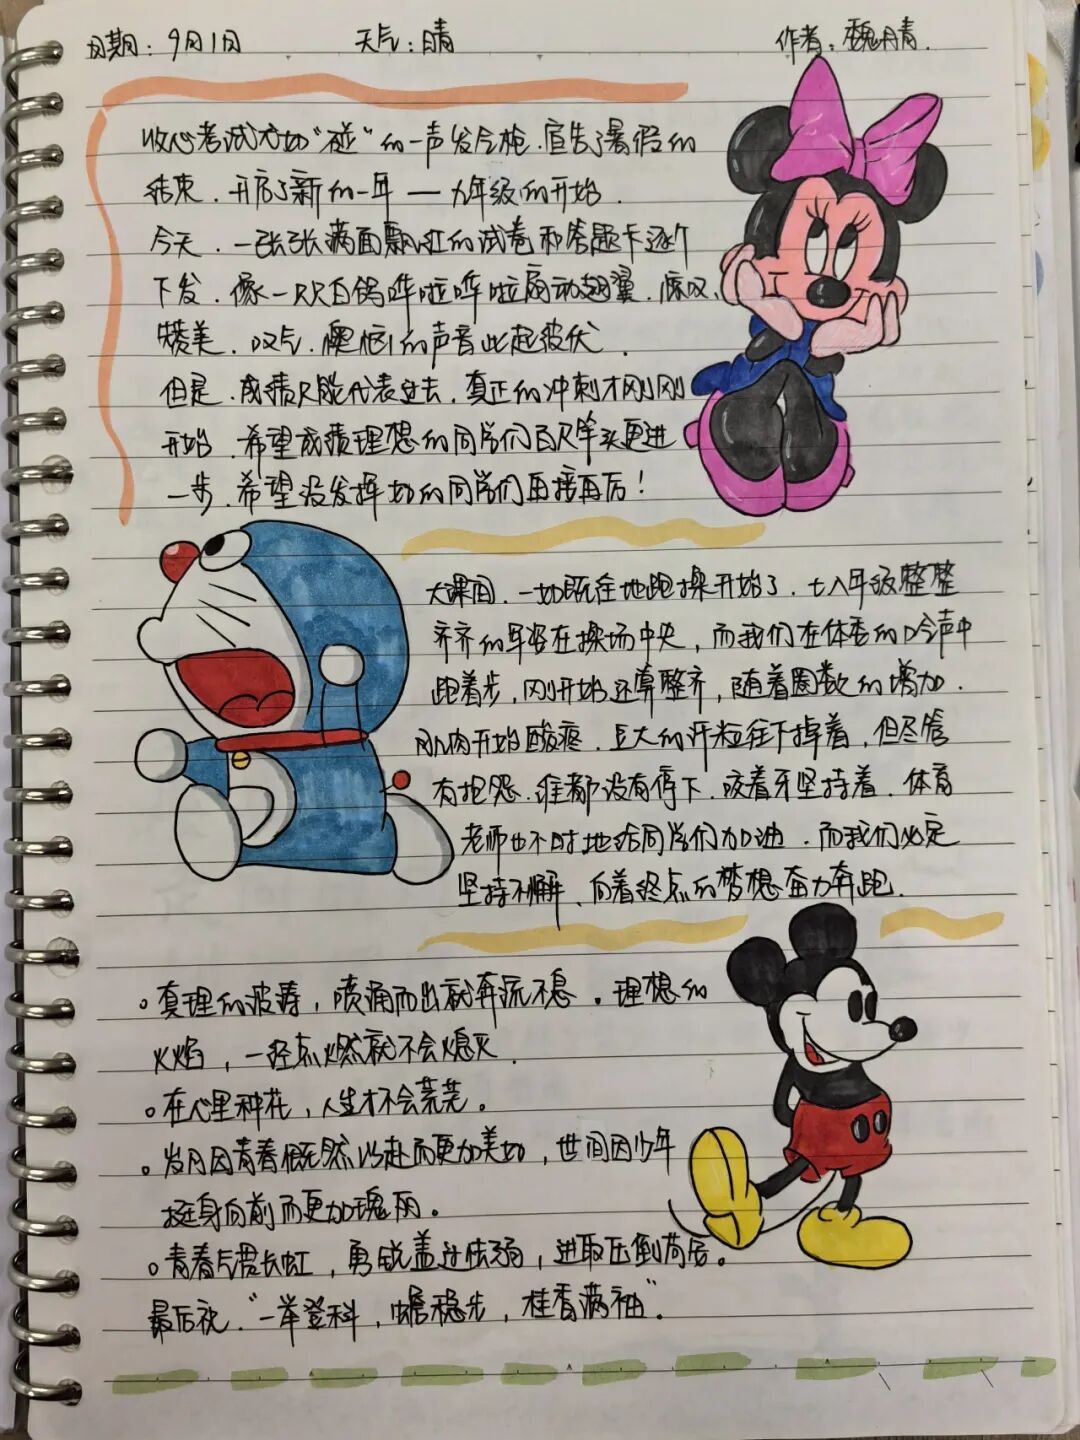 日期：9月1日 天气：晴 作者：魏月青.
收心考试犹如“碰”的一声发令枪.宣告了暑假的
结束.开启了新的一年—九年级的开始.
今天.一张张满面飘红的试卷和答题卡逐个
下发.像一只只白鸽哗啦哗啦扇动翅翼.惊叹、
赞美.叹气.懊恼的声音此起彼伏.
但是.成绩只能代表过去.真正的冲刺才刚刚
开始.希望成绩理想的同学们百尺竿头更进
一步.希望没发挥好的同学们再接再厉！
大课间.一如既往地跑操开始了.七八年级整整
齐齐的身姿在操场中央，而我们在体委的口令声中
跑着步，刚开始还算整齐，随着圈数的增加.
肌肉开始酸疼.豆大的汗粒往下掉着，但尽管
有抱怨.谁都没有停下.咬着牙坚持着.体育
老师也不时地给同学们加油.而我们必定
坚持不懈、向着终点的梦想奋力奔跑.
。真理的波涛，喷涌而出就奔流不息。理想的
火焰，一经点燃就不会熄灭.
。在心里种花，人生才不会荒芜。
。岁月因青春慨然以赴而更加美好，世间因少年
挺身向前而更加瑰丽。
。青春气贯长虹，勇锐盖过怯弱，进取压倒苟安。
最后祝.“一举登科，蟾稳步，桂香满袖”.